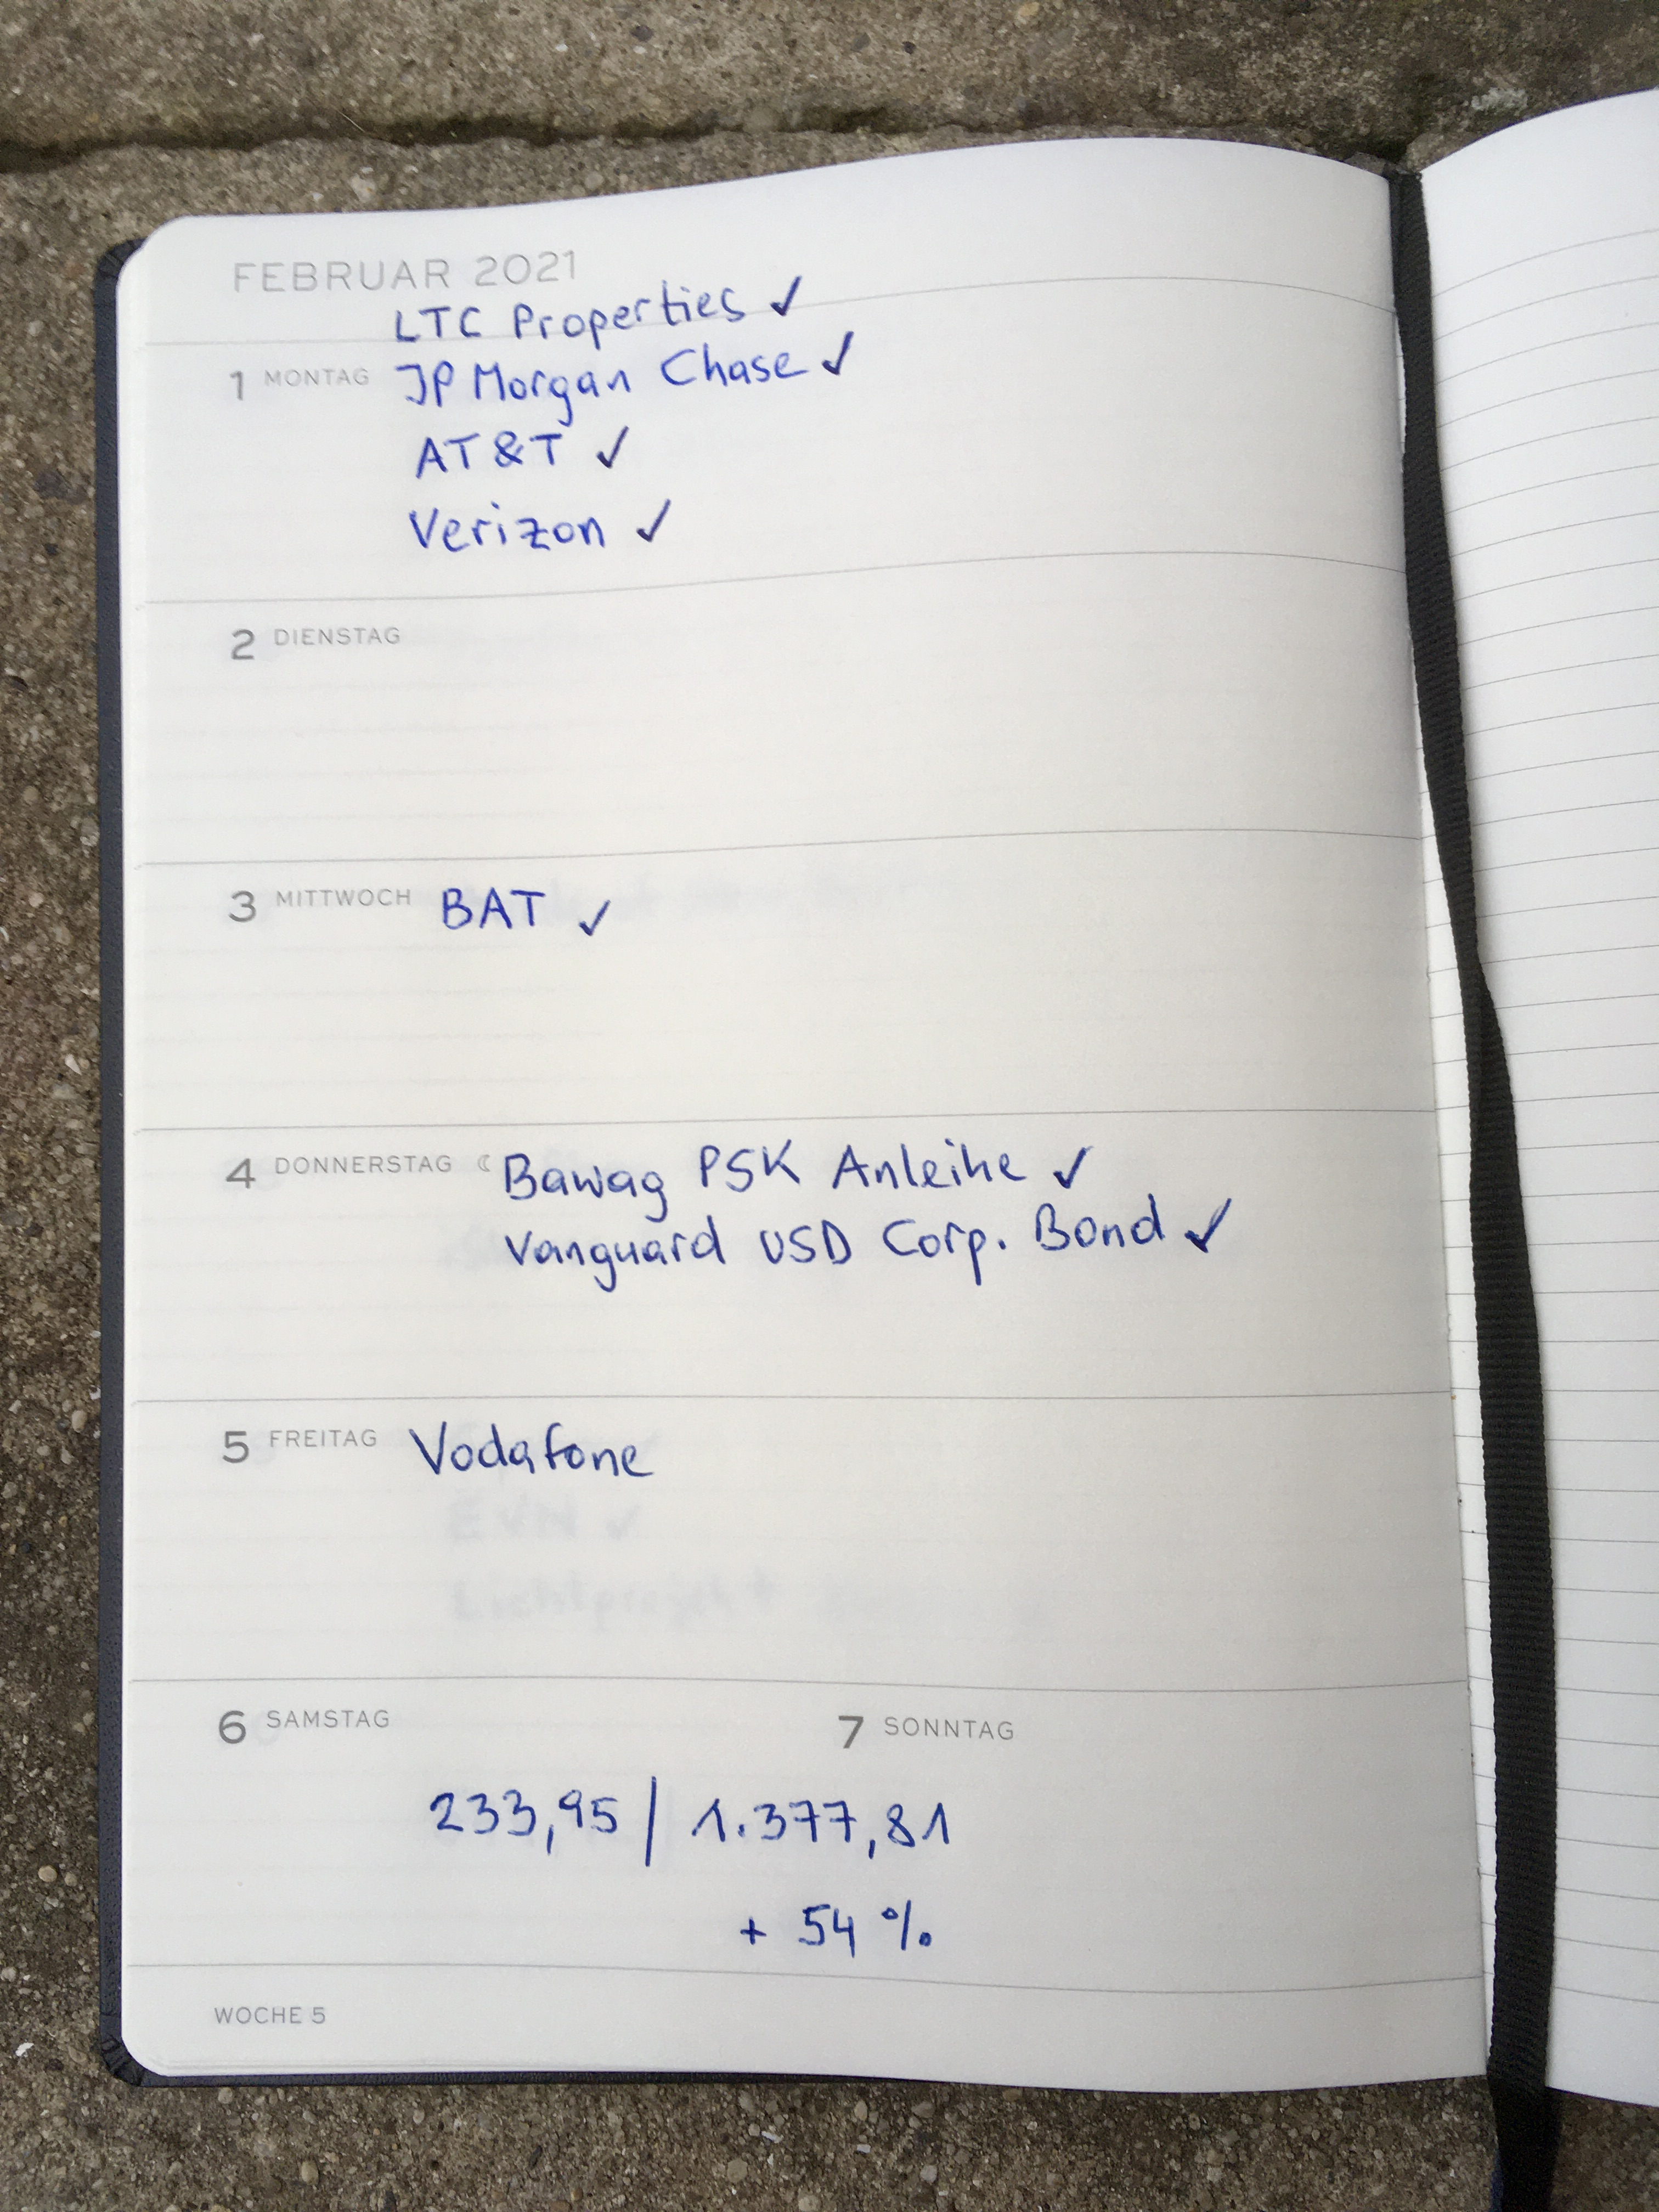 FEBRUAR 2021
LTC Properties ✓
1 MONTAG JP Morgan Chase ✓
AT&T ✓
Verizon ✓
2 DIENSTAG
3 MITTWOCH BAT ✓
4 DONNERSTAG ☾ Bawag PSK Anleihe ✓
Vanguard USD Corp. Bond ✓
5 FREITAG Vodafone
EVN ✓
Lichtprojekt
6 SAMSTAG 7 SONNTAG
233,95 | 1.377,81
+ 54 %
WOCHE 5